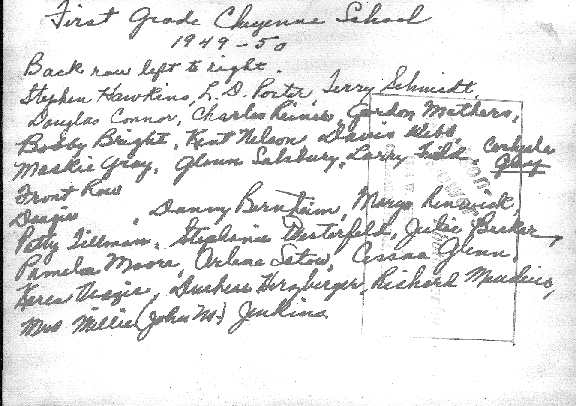 First Grade Cheyenne School
1949-50
Back row left to right.
Stephen Hawkins, L. D. Porter, Terry Schmidt,
Douglas Connor, Charles Reinie, Gordon Mathers,
Bobby Bright, Kent Nelson, David Webb,
Maskie Gray, Glenn Salsbury, Larry Field, Gray
Front Row
Danny Bernheim, Marye Renwick,
Patty Tillman, Stephanie Chesterfeld, Julie Barker,
Pamela Moore, Arlene Satow, Glenn,
Karen Herzberger, Richard
Mrs Millie (John M.) Jenkins